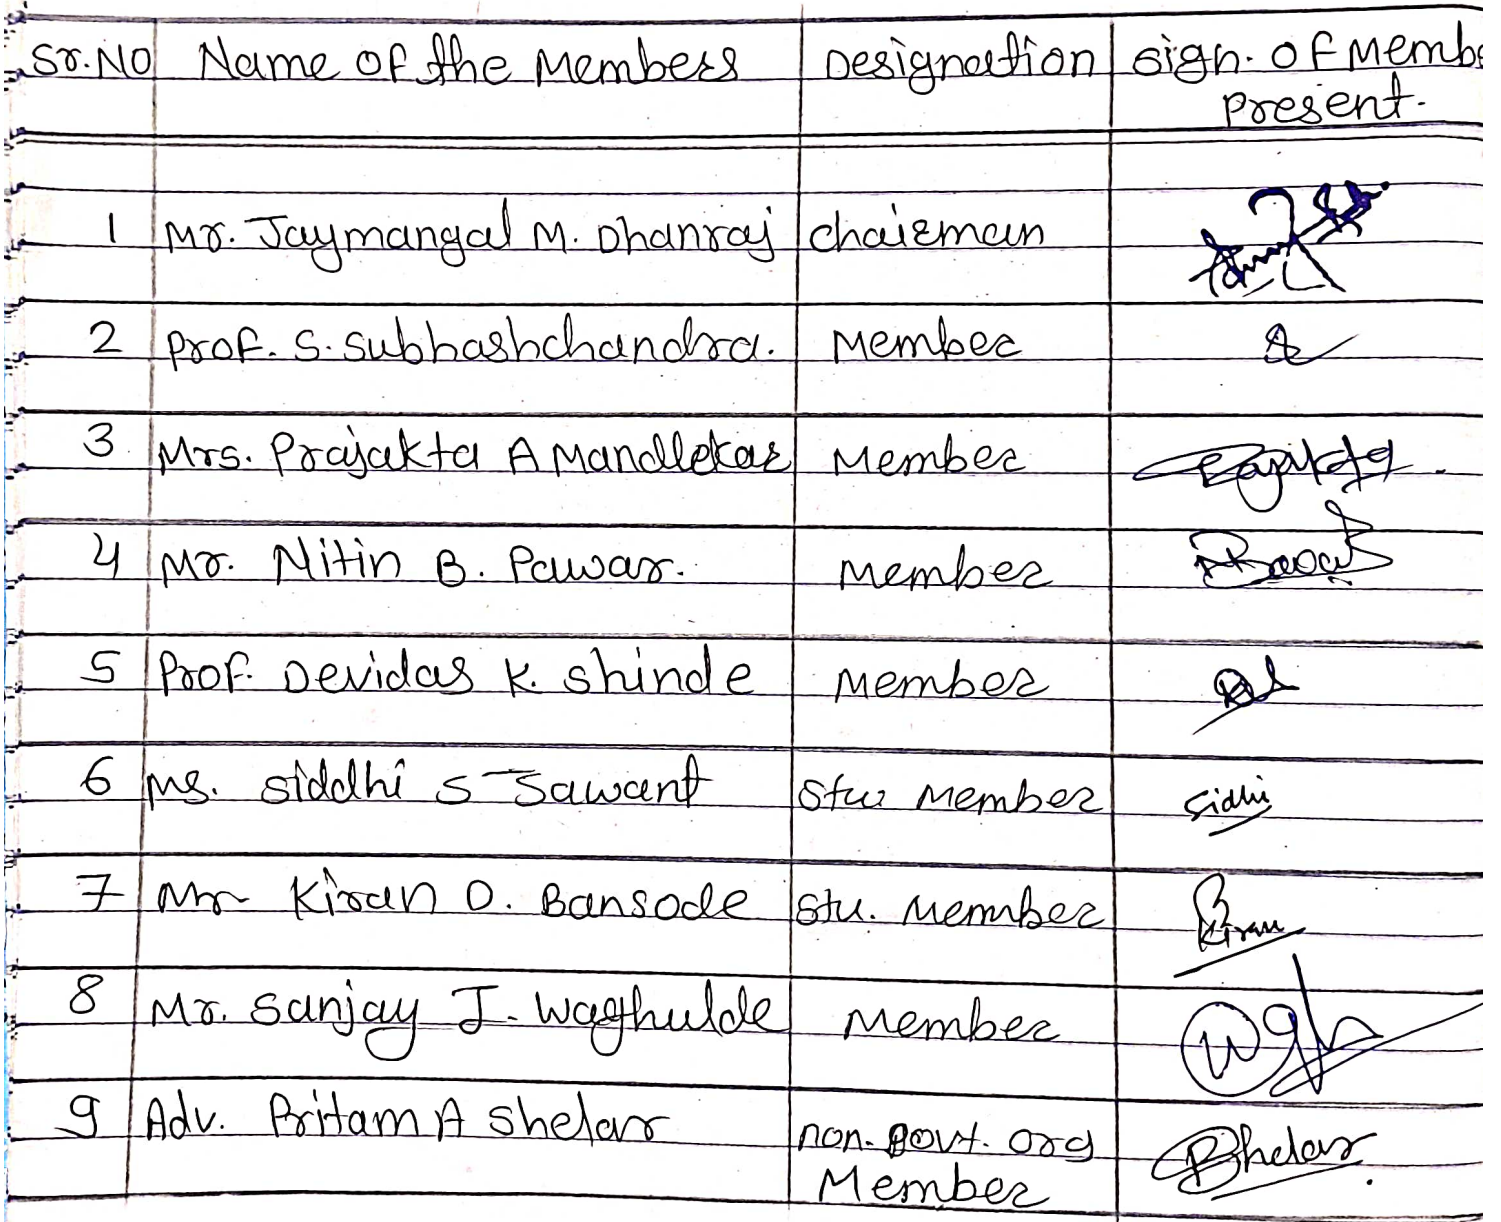 Sr.No Name of the Members Designation Sign. of Membe
Present.
1 Mr. Jaymangal M. Dhanraj Chairman
2 Prof. S. Subhashchandra. Member
3 Mrs. Prajakta A Mandlekar Member Prajakta
4 Mr. Nitin B. Pawar. Member
5 Prof. Devidas K. Shinde Member
6 Ms. Siddhi S Sawant Stu. Member Sidhi
7 Mr Kiran D. Bansode Stu. Member Kiran
8 Mr. Sanjay J. Waghulde Member
9 Adv. Pritam A Shelar non. Govt. Org
Member Shelar